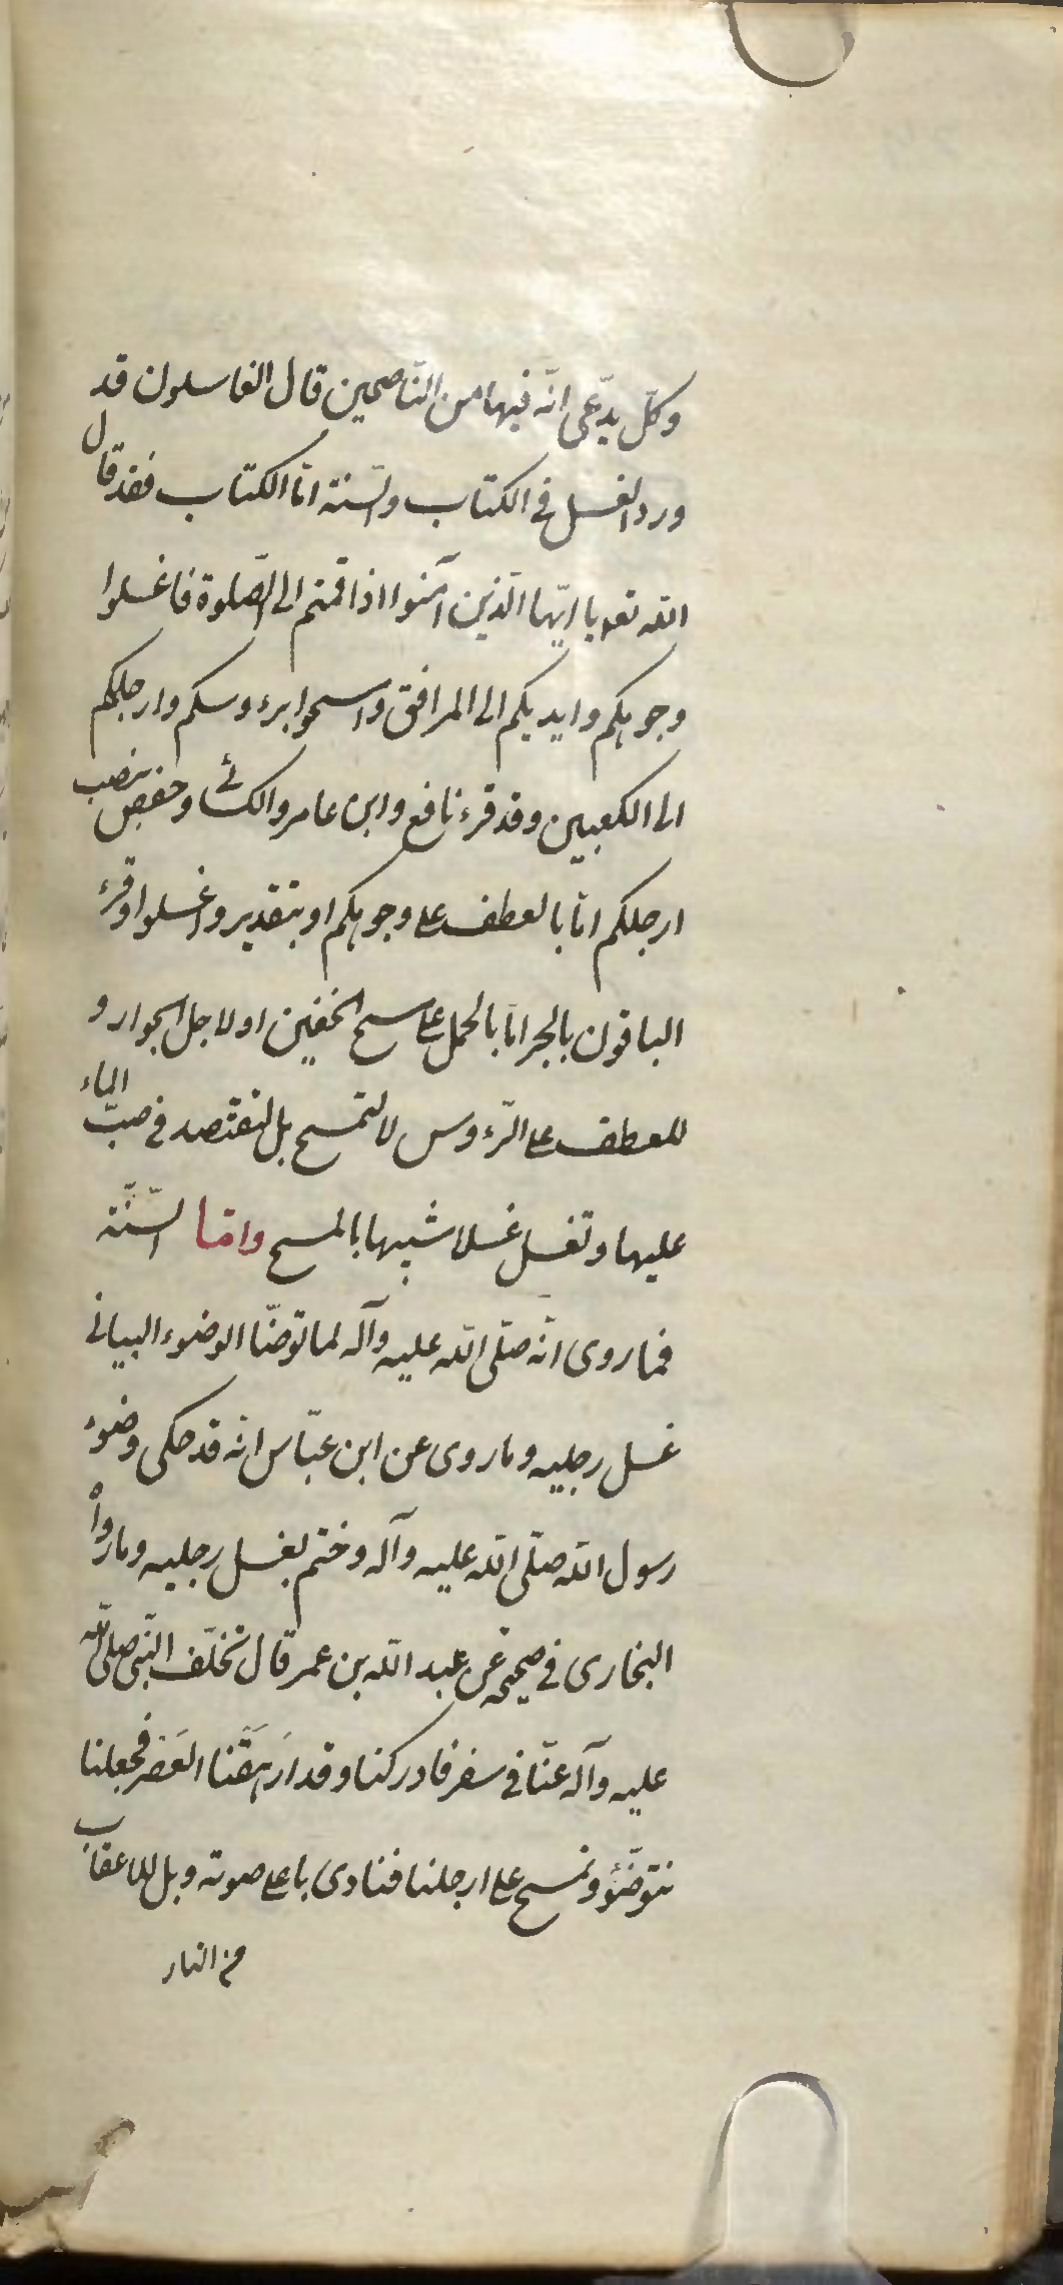 وكلّ يدّعى انّه فيها من النّاصحين قال الغاسلون قد
ورد الغسل فى الكتاب والسّنة امّا الكتاب فقد قال
الله تعه يا ايّها الّذين آمنوا اذا قمتم الى الصّلوة فاغسلوا
وجوهكم وايديكم الى المرافق وامسحوا برءوسكم وارجلكم
الى الكعبين وقد قرء نافع وابن عامر والكسائى وحفص بنصب
ارجلكم امّا بالعطف على وجوهكم او بتقدير واغسلوا وقرء
الباقون بالجر امّا بالحمل على مسح الخفين او لاجل الجوار و
للعطف على الرّءوس لا لتمسح بل لتقتصد فى صبّ الماء
عليها وتغسل غسلا شبيها بالمسح وامّا السّنّة
فما روى انّه صلّى الله عليه وآله لما توضّا الوضوء البيانى
غسل رجليه وما روى عن ابن عبّاس انّه قد حكى وضوء
رسول الله صلّى الله عليه وآله وختم بغسل رجليه وما رواه
البخارى فى صحيحه عن عبد الله بن عمر قال تخلّف النّبى صلى الله
عليه وآله عنّا فى سفر فادركنا وقد ارَهَقَنا العَصْر فجعلنا
نتوضّؤ ونمسح على ارجلنا فنادى باعلى صوته ويل للاعقاب
من النار